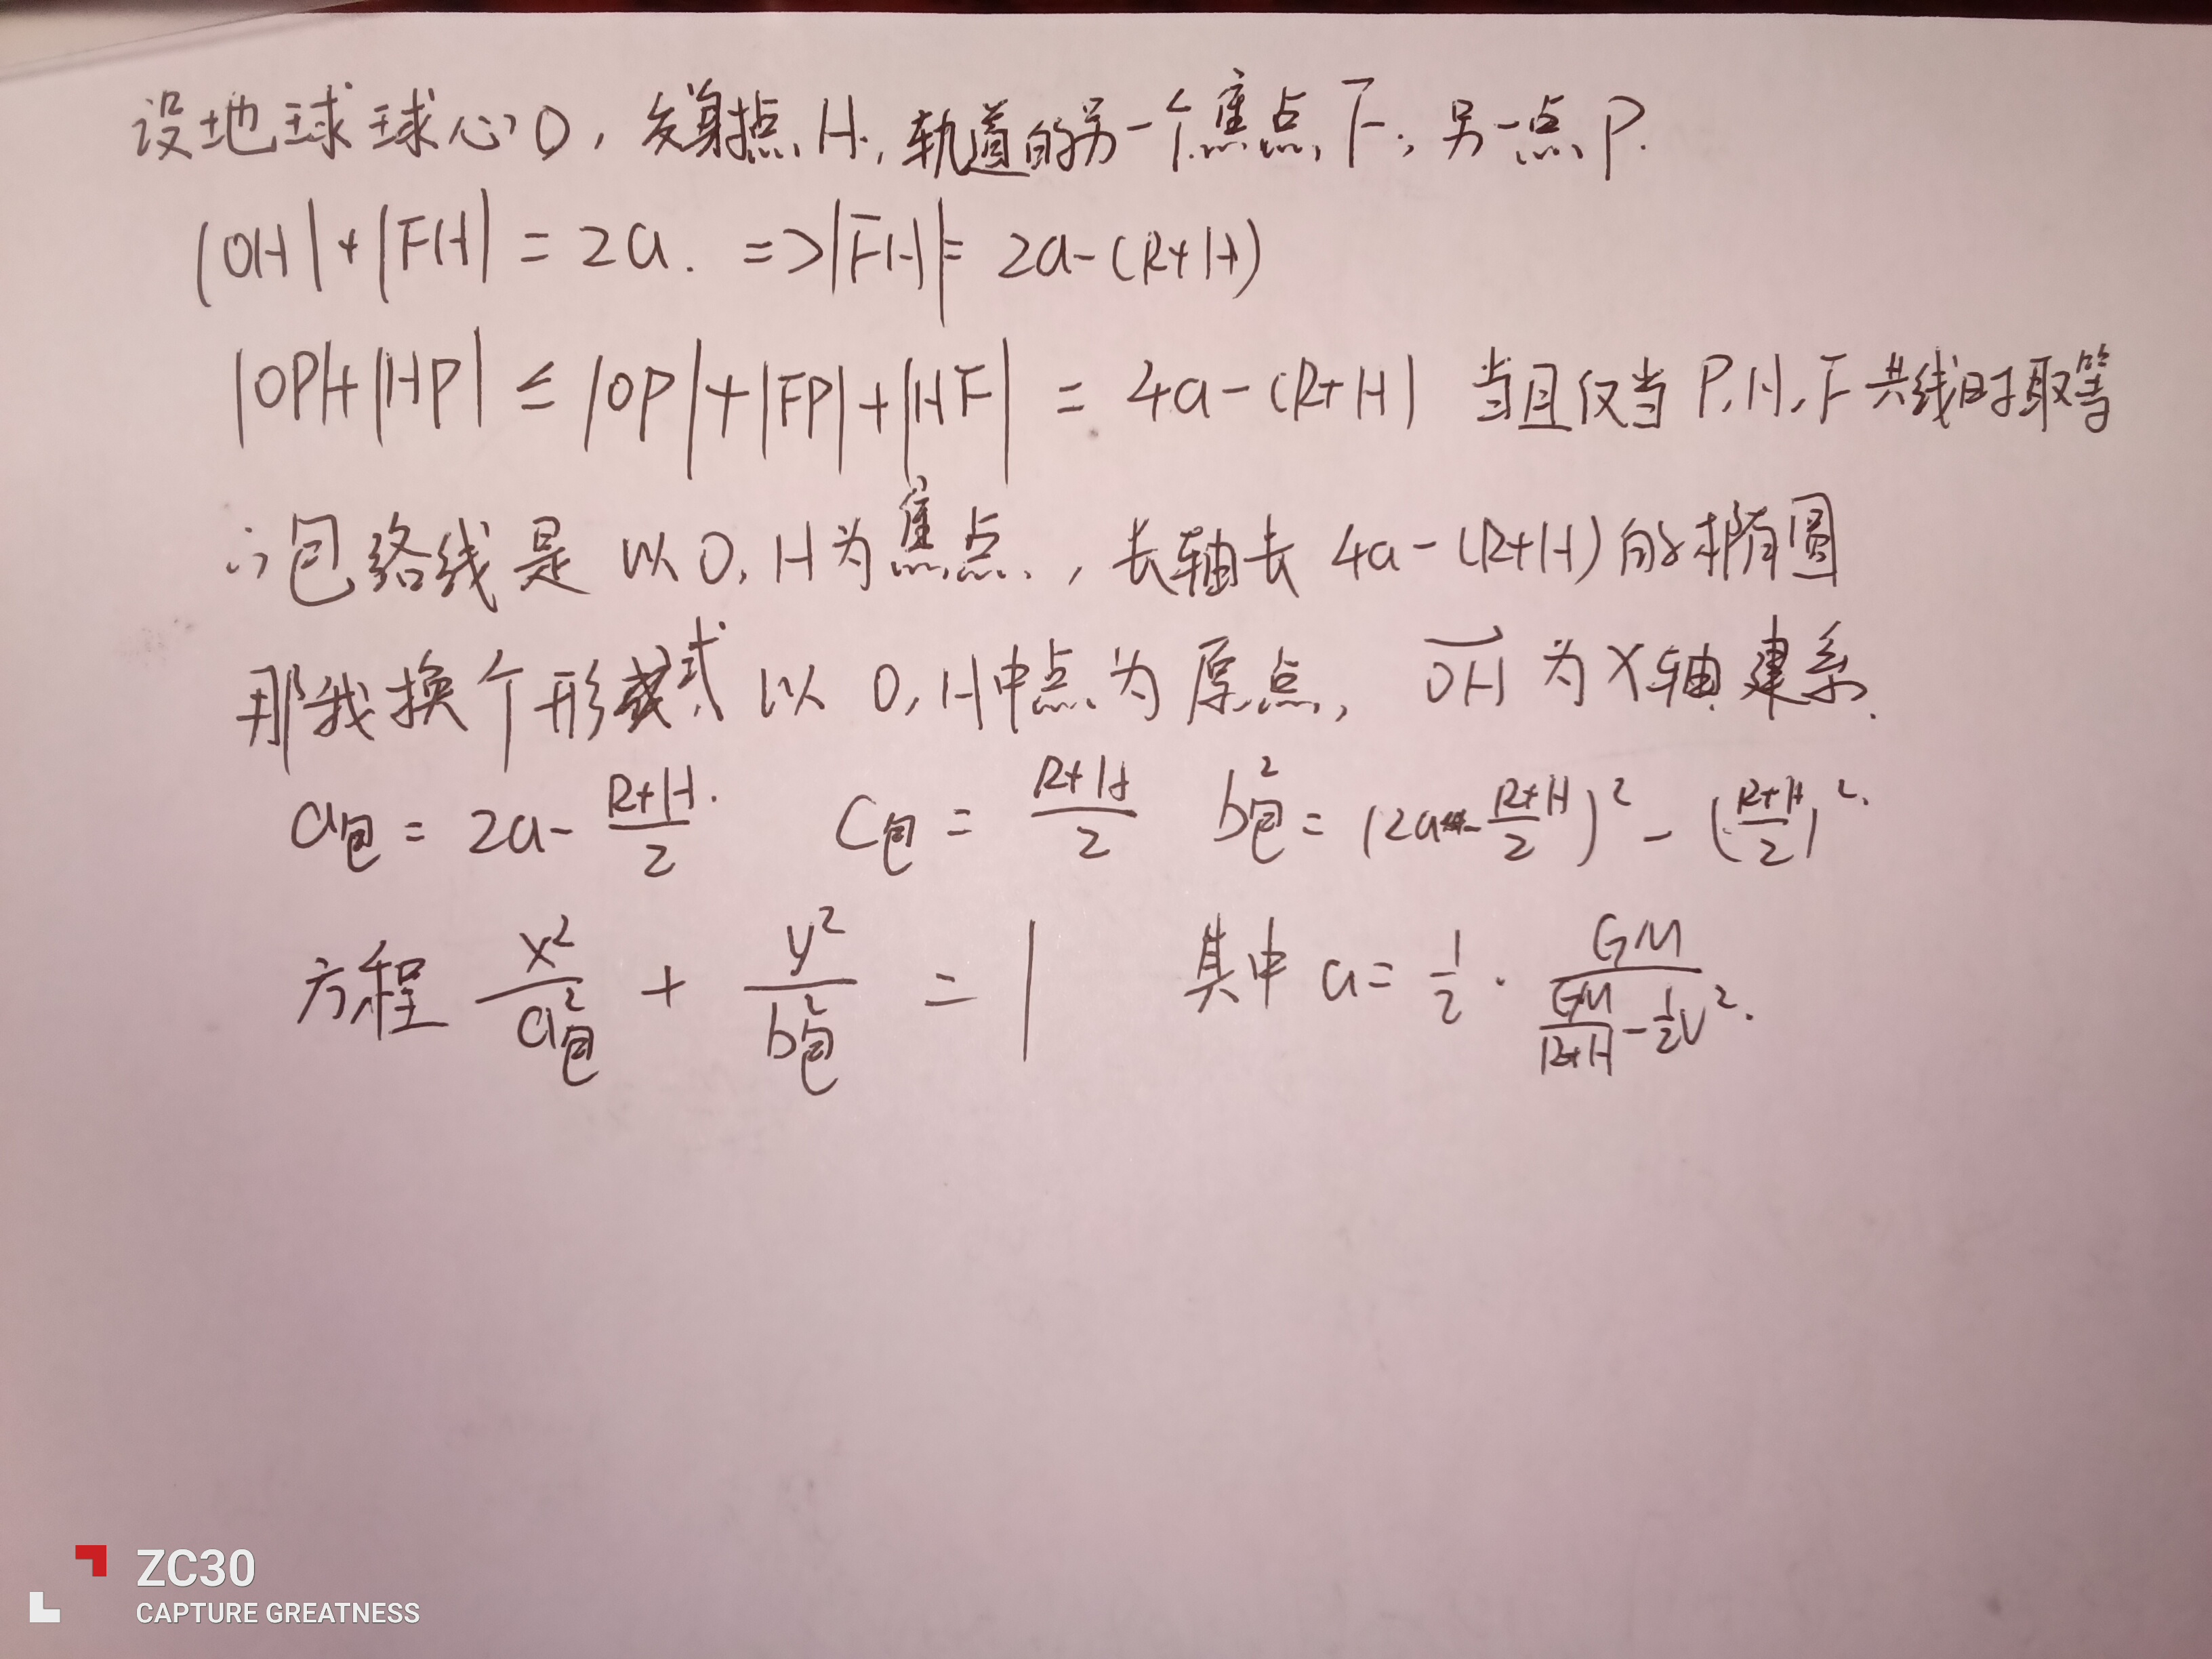 设地球球心O,发射点H,轨道的另一个焦点F,另一点P.
|OH|+|FH|=2a. =>|FH|=2a-(R+H)
|OP|+|HP|≤|OP|+|FP|+|HF|=4a-(R+H) 当且仅当P,H,F共线时取等
∴包络线是以O,H为焦点,长轴长4a-(R+H)的椭圆
那我换个形式 以O,H中点为原点,\overrightarrow{OH}为X轴建系.
a包=2a-\frac{R+H}{2} c包=\frac{R+H}{2} b包^2=(2a-\frac{R+H}{2})^2-(\frac{R+H}{2})^2.
方程\frac{x^2}{a包^2}+\frac{y^2}{b包^2}=1 其中a=\frac{1}{2}·\frac{GM}{\frac{GM}{R+H}-\frac{1}{2}v^2}.
ZC30
CAPTURE GREATNESS